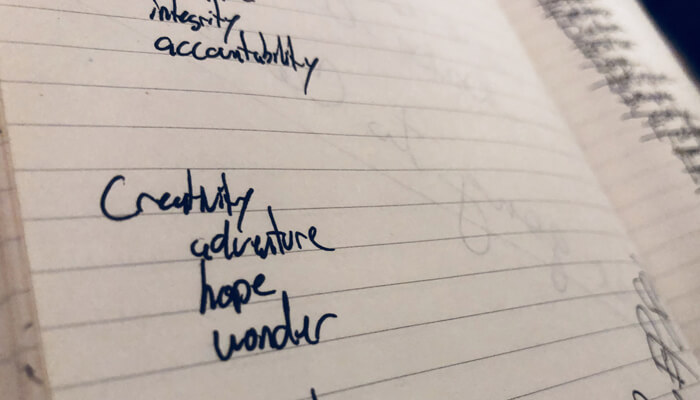 integrity
accountability
Creativity
adventure
hope
wonder